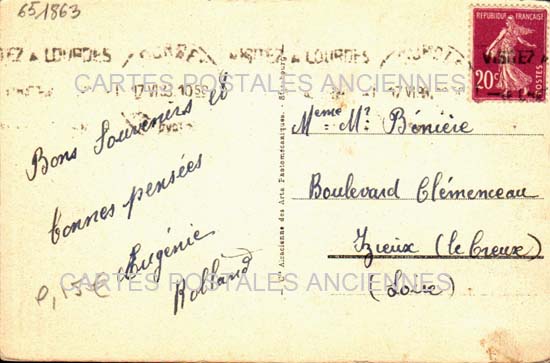 651863
VISITEZ LOURDES VISITEZ LOURDES
REPUBLIQUE FRANÇAISE
20c
POSTES
VISITEZ
17 VI 10
17 VI
CARTES POSTALES ANCIENNES
Bons Souvenirs et
bonnes pensées
Eugénie
Rolland
0,15€
Alsacienne des Arts Photomécaniques. Strasbourg
Mr Bénière
Boulevard Clémenceau
Izieux (le Creux)
(Loire)
CARTES POSTALES ANCIENNES